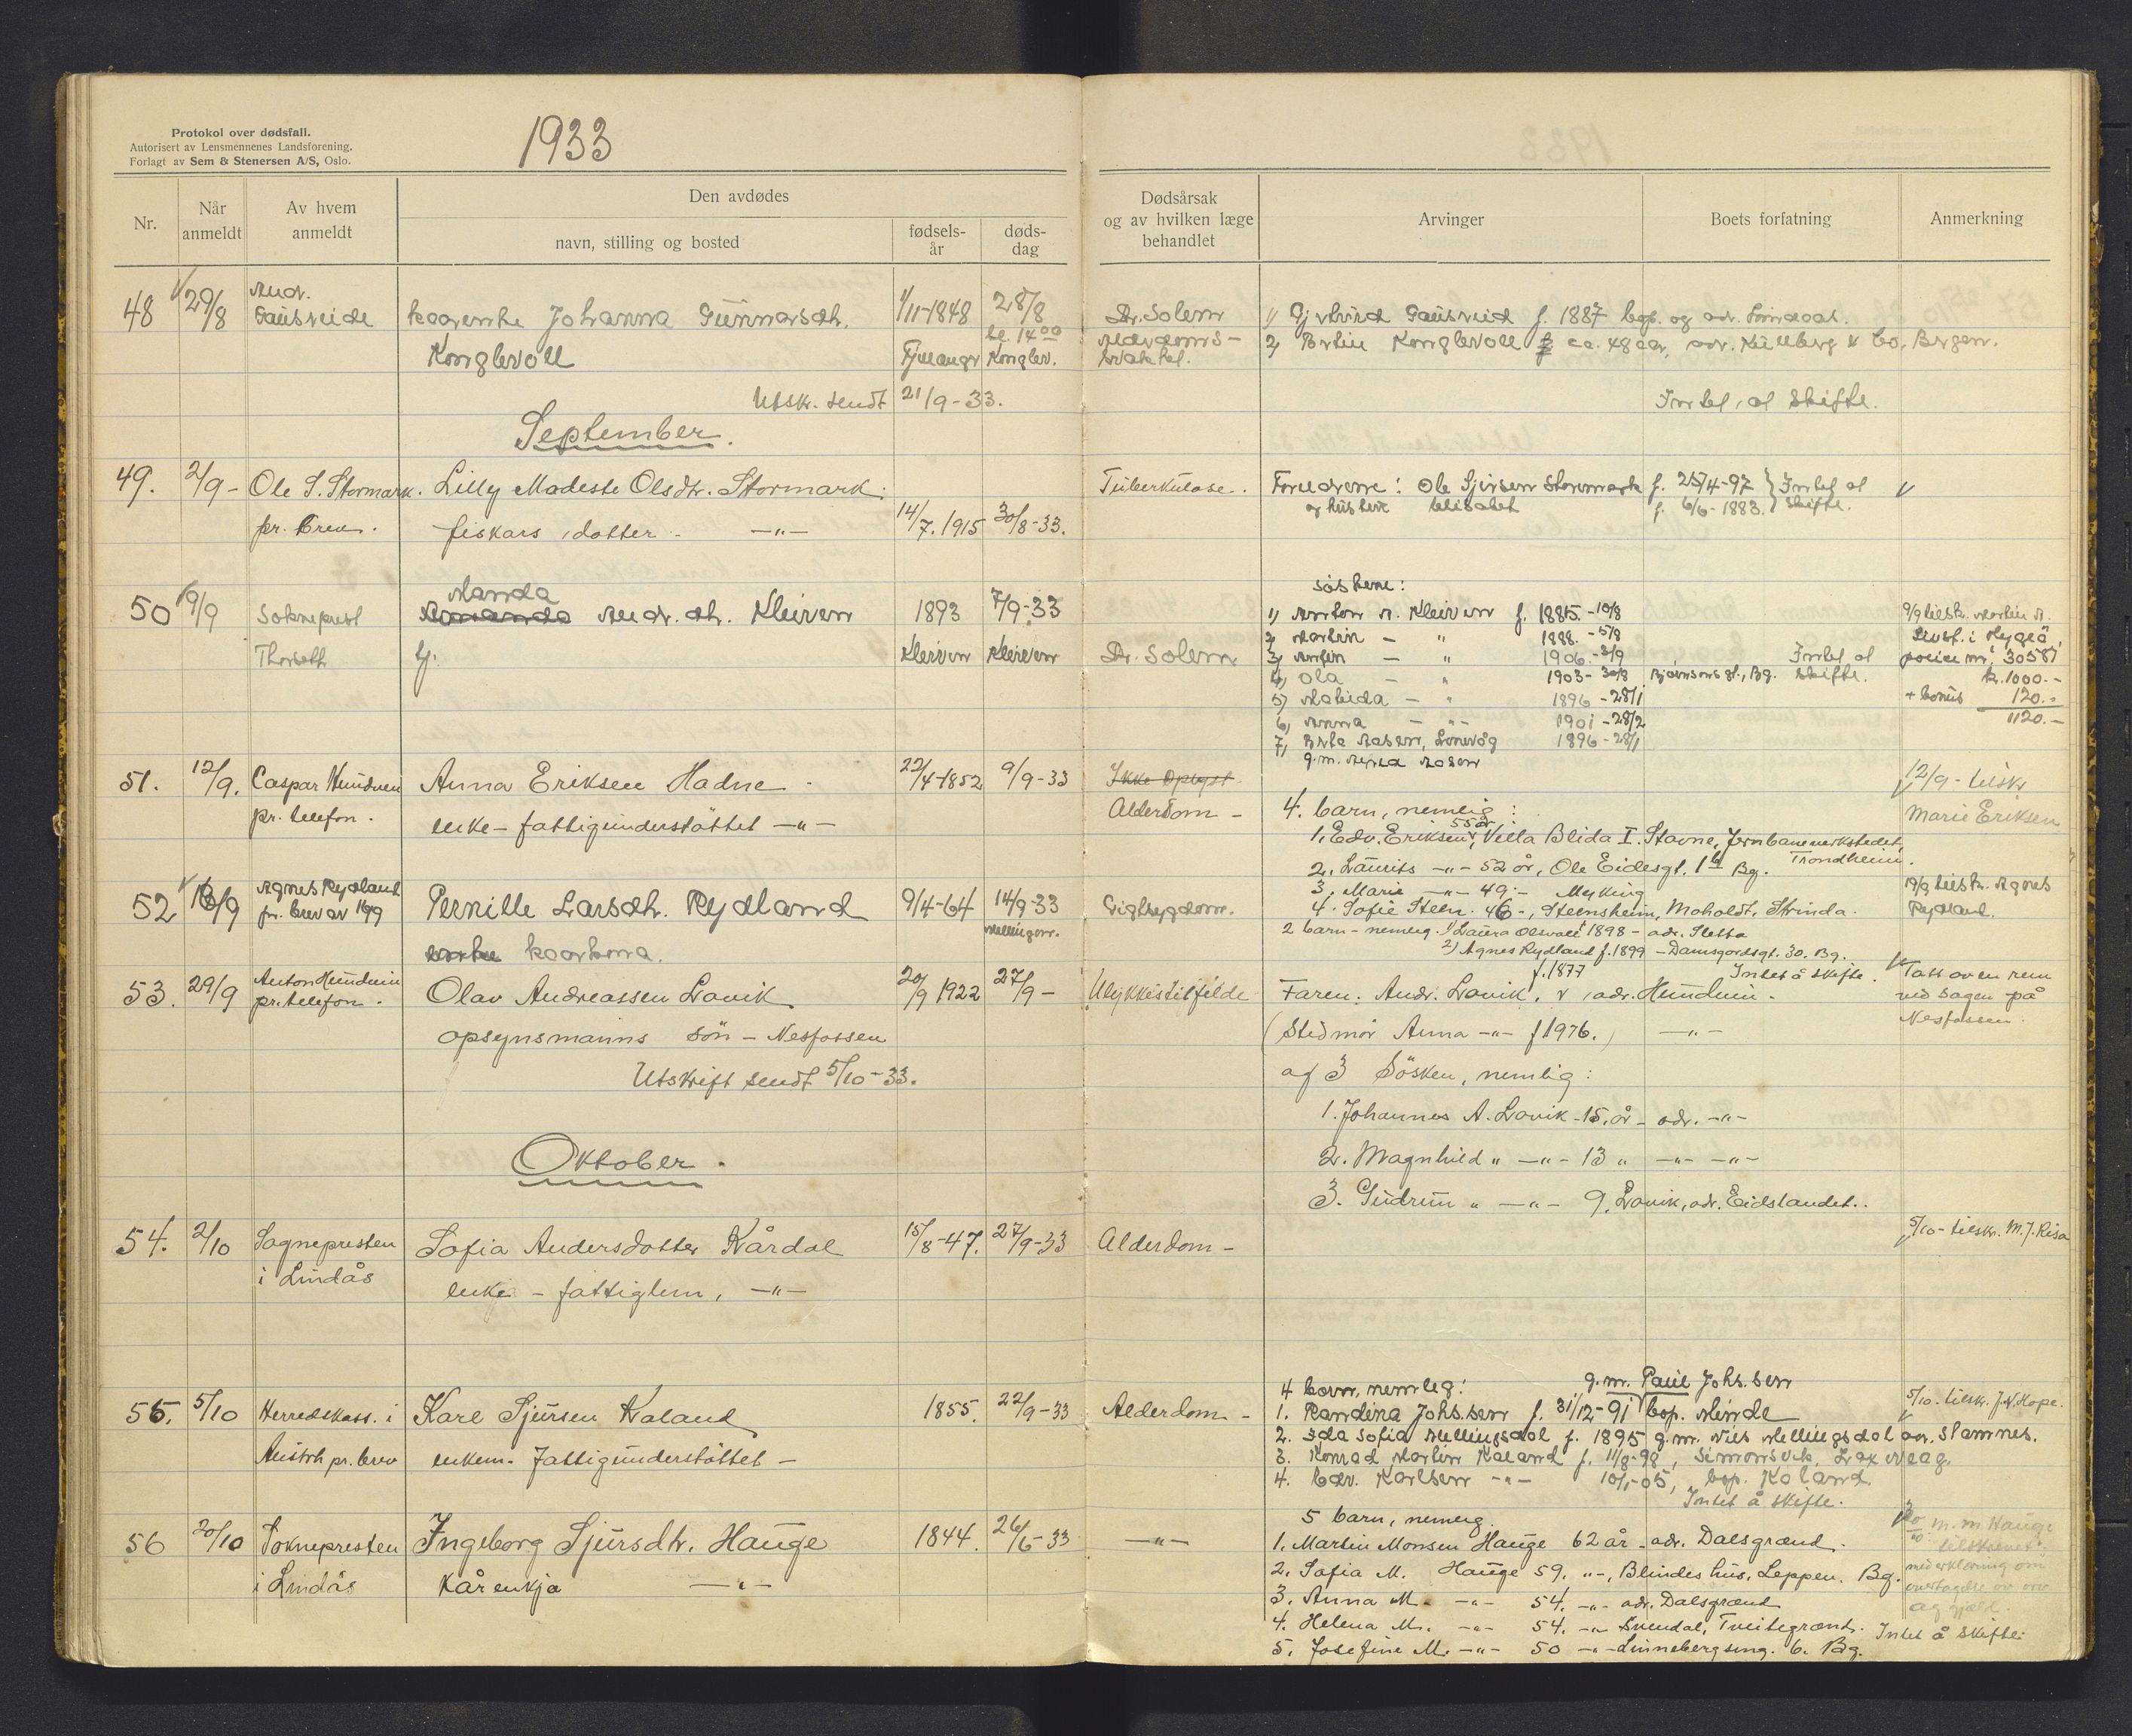 Protokol over dødsfall.
Autorisert av Lensmennenes Landsforening.
Forlagt av Sem & Stenersen A/S, Oslo.
1933
Nr.
Når anmeldt
Av hvem anmeldt
Den avdødes
navn, stilling og bosted
fødsels-år
døds-dag
Dødsårsak og av hvilken læge behandlet
Arvinger
Boets forfatning
Anmerkning
48 29/8 Andr. Johanna Gunnarsdtr. 1/11-1848 28/8 Dr. Solem 1) f. 1887 bop. og adr.
Konglevoll kl. 14 00 Konglev. 2) Konglevoll ca. 48 år, adr. & Co, Bergen.
Utskr. sendt 21/9-33. Intet å skifte.
September.
49. 2/9- Ole S. Stormark. Lilly Modeste Olsdtr. Stormark. Tuberkulose. Foreldrene: Ole Sjursen Storemark f. 25/4-97 Intet å
pr. brev. fiskars dotter - -"- 14/7.1915 30/8-33. og hustru Elisabet f. 6/6-1883. skifte.
søskene:
50 9/9 Sokneprest Manda Amanda Andr. dtr. Kleiven 1893 7/9-33 1) Anton A. Kleiven f. 1885-10/8 9/9 tilsk. Martin A.
Thorseth Kleiven Kleiven Dr. Solem 2) Martin - " 1888.-5/8 Livsf. i Hygea,
3) - " 1906.-2/9 Intet å police nr. 30587
4) Ola - " 1903-30/8 Bjørnsons gt., Bg. skifte. kr. 1000.-
5) - " 1896-28/1 + bonus 120.-
6) Anna - " - 1901-28/2 1120.-
7) Brita Aasen, Lonevåg 1896-28/1
g.m. Aasen
51. 12/9. Caspar Hundven Anna Eriksen Hadne - 22/4-1852 9/9-33 Ikke oplyst 12/9- tilsk
pr. telefon. enke - fattigunderstøttet -"- Alderdom - 4. barn, nemlig: Marie Eriksen
1. Edv. Eriksen, 55 år Villa Blida I. Stavne, Jernbaneverkstedet, Trondheim.
2. Laurits -"- 52 år, Ole Eidesgt. 1b Bg.
3. Marie -"- 49 - Myking
4. Sofie Steen. 46 -, Steensheim, Moholdt, Strinda.
52 16/9 Agnes Rydland pr. brev av 14/9 Pernille Larsdtr. Rydland 9/4-64 14/9-33 Gigtsygdom. 19/9 tilskr. Agnes Rydland.
kårkona. 2 barn - nemlig 1) Laura Olsvoll 1898 - adr. Sletta
2) Agnes Rydland f. 1899 - Damsgårdsgt. 30. Bg.
Intet å skifte.
53. 29/9 Anton Hundvin pr. telefon. Olav Andreassen Lavik 20/9 1922 27/9- Ulykkestilfelde Faren: Andr. Lavik, f. 1877, adr. Hundvin. Tatt av en rem
opsynsmanns søn - Nesfossen (Stidmor Anna -"- f 1976.) -"- ved sagen på
Nesfossen.
Utskrift sendt 5/10-33. og 3 søsken, nemlig:
1. Johannes A. Lavik - 15. år - adr. -"-
2. Magnhild " -"- 13 " -"- -"-
3. Gudrun " -"- 9. Lavik, adr. Eidslandet.
Oktober.
54. 2/10 Sognepresten Sofia Andersdotter Kårdal 15/8-47. 27/9-33 Alderdom - 5/10 - tilskr. M. J. Risa
i Lindås enke - fattiglem, -"-
4 born, nemleg: g.m. Paul Johs.sen
55. 5/10 Herredskass. i Karl Sjursen Kaland 1855. 22/9-33 Alderdom - 1. Randina Johs.sen f. 31/12-91 bop. Minde 5/10. tilskr. J. N. Hope.
Austrh pr. brev enkem. Fattigunderstøttet - 2. Ida Sofia Mellingsdal f. 1895 g.m. Nils Mellingsdal adr. Stamnes.
3. Konrad Martin Kaland f. 11/8-98, Simonsvik, Laxevåg.
4. Edv. Karlsen -"- 10/1-05, bop. Kaland.
Intet å skifte.
5 barn, nemlig
56 20/10 Soknepresten Ingeborg Sjursdtr. Hauge 1844. 26/6-33 -"- 1. Martin Monsen Hauge 62 år - adr. Dalsgrend. M. M Hauge
i Lindås Kårenkja -"- 2. Sofia M. Hauge 59. "-, Blindes hus, Leppen. Bg. tilskrevet
3. Anna M. -"- 54. -"- adr. Dalsgrend med erklæring om overtagelse av arv og gjeld.
4. Helena M. -"- 54. -"- Svendal, Tveitegrend. Intet å skifte.
5. Josefine M. -"- 50 -"- Linnebergsveg. 6. Bg.